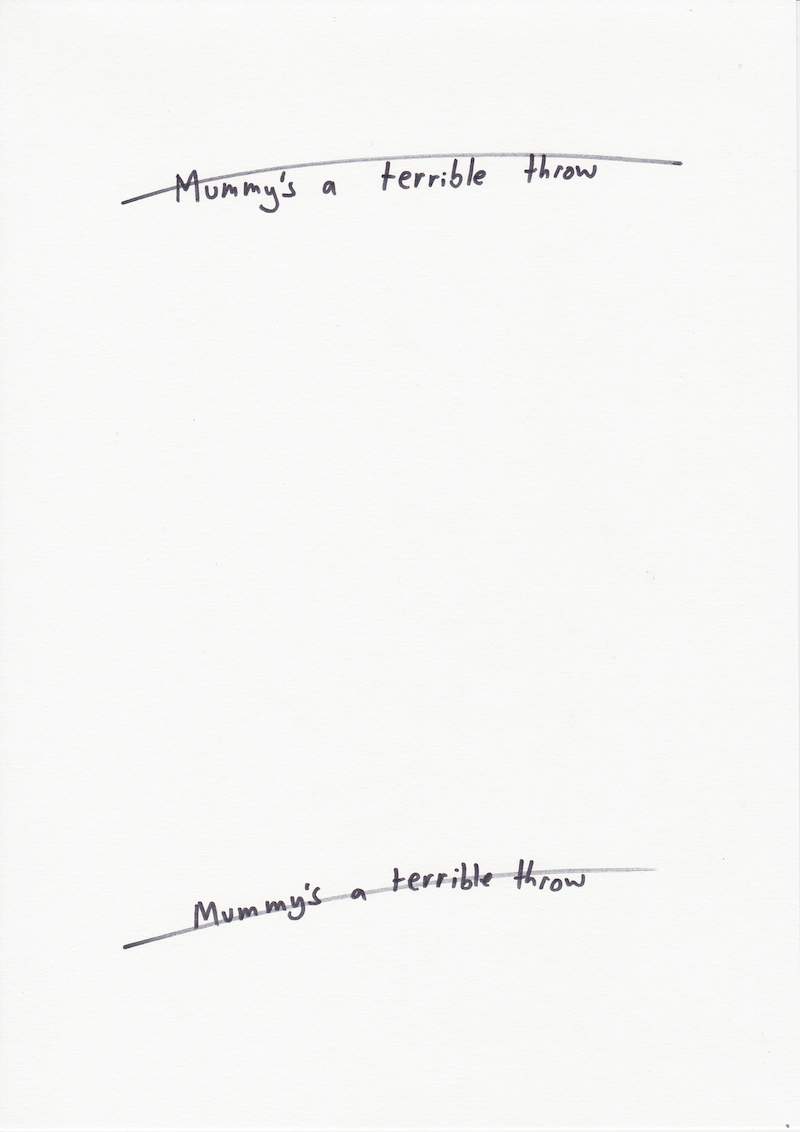 Mummy's a terrible throw
Mummy's a terrible throw